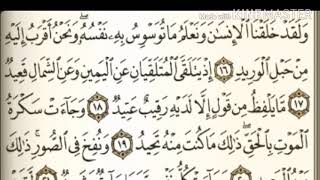 Made with KINEMASTER
وَلَقَدْ خَلَقْنَا ٱلْإِنسَٰنَ وَنَعْلَمُ مَا تُوَسْوِسُ بِهِۦ نَفْسُهُۥ ۖ وَنَحْنُ أَقْرَبُ إِلَيْهِ
مِنْ حَبْلِ ٱلْوَرِيدِ ١٦ إِذْ يَتَلَقَّى ٱلْمُتَلَقِّيَانِ عَنِ ٱلْيَمِينِ وَعَنِ ٱلشِّمَالِ قَعِيدٌ
١٧ مَّا يَلْفِظُ مِن قَوْلٍ إِلَّا لَدَيْهِ رَقِيبٌ عَتِيدٌ ١٨ وَجَآءَتْ سَكْرَةُ
ٱلْمَوْتِ بِٱلْحَقِّ ۖ ذَٰلِكَ مَا كُنتَ مِنْهُ تَحِيدُ ١٩ وَنُفِخَ فِى ٱلصُّورِ ۚ ذَٰلِكَ